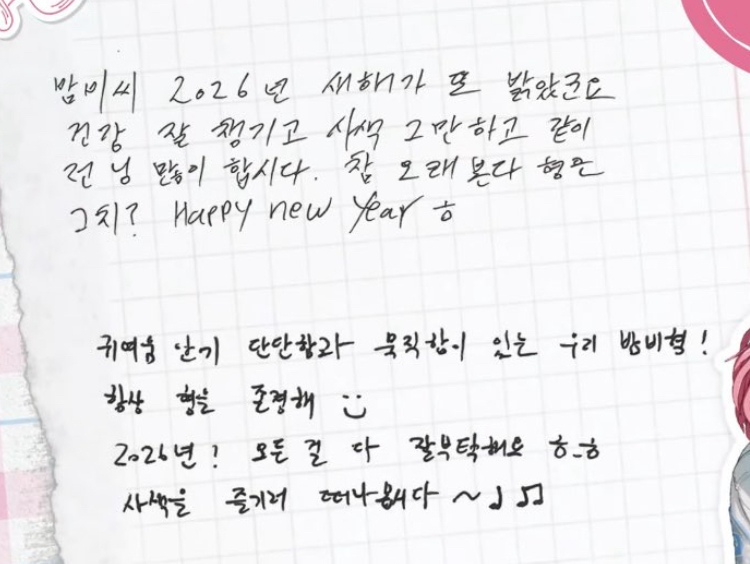 밤비씨 2026년 새해가 또 밝았군요
건강 잘 챙기고 사색 그만하고 같이
전 넝 많이 합시다. 참 오래본다 형은
그치? Happy new year ㅎ
귀여움 단단함과 묵직함이 있는 우리 밤비형!
항상 형을 존경해
2026년! 모든 걸 다 잘부탁해요 ㅎ_ㅎ
사색을 즐기러 떠나봅시다 ~ ♩ ♫